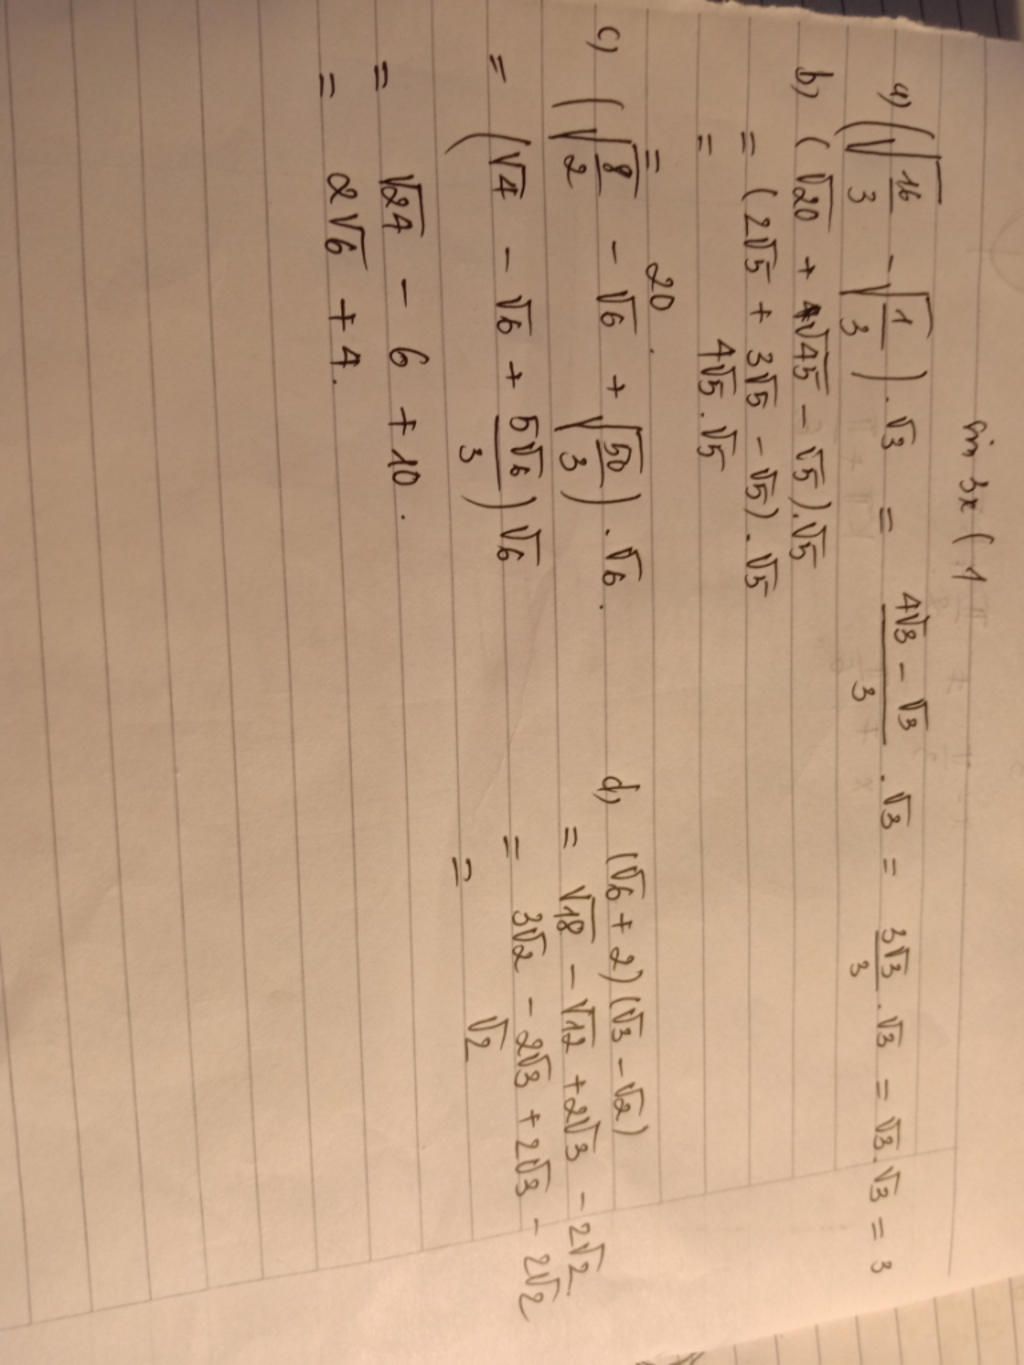 sin 3x ( 1
a) (√(16/3) - √(1/3)) . √3 = (4√3 - √3)/3 . √3 = 3√3/3 . √3 = √3.√3 = 3
b) (√20 + √45 - √5).√5
= (2√5 + 3√5 - √5) . √5
= 4√5 . √5
= 20.
c) (√(8/2) - √6 + √(50/3)) . √6.
= (√4 - √6 + 5√6/3) √6
= √24 - 6 + 10.
= 2√6 + 4.
d) (√6 + 2)(√3 - √2)
= √18 - √12 + 2√3 - 2√2
= 3√2 - 2√3 + 2√3 - 2√2
= √2